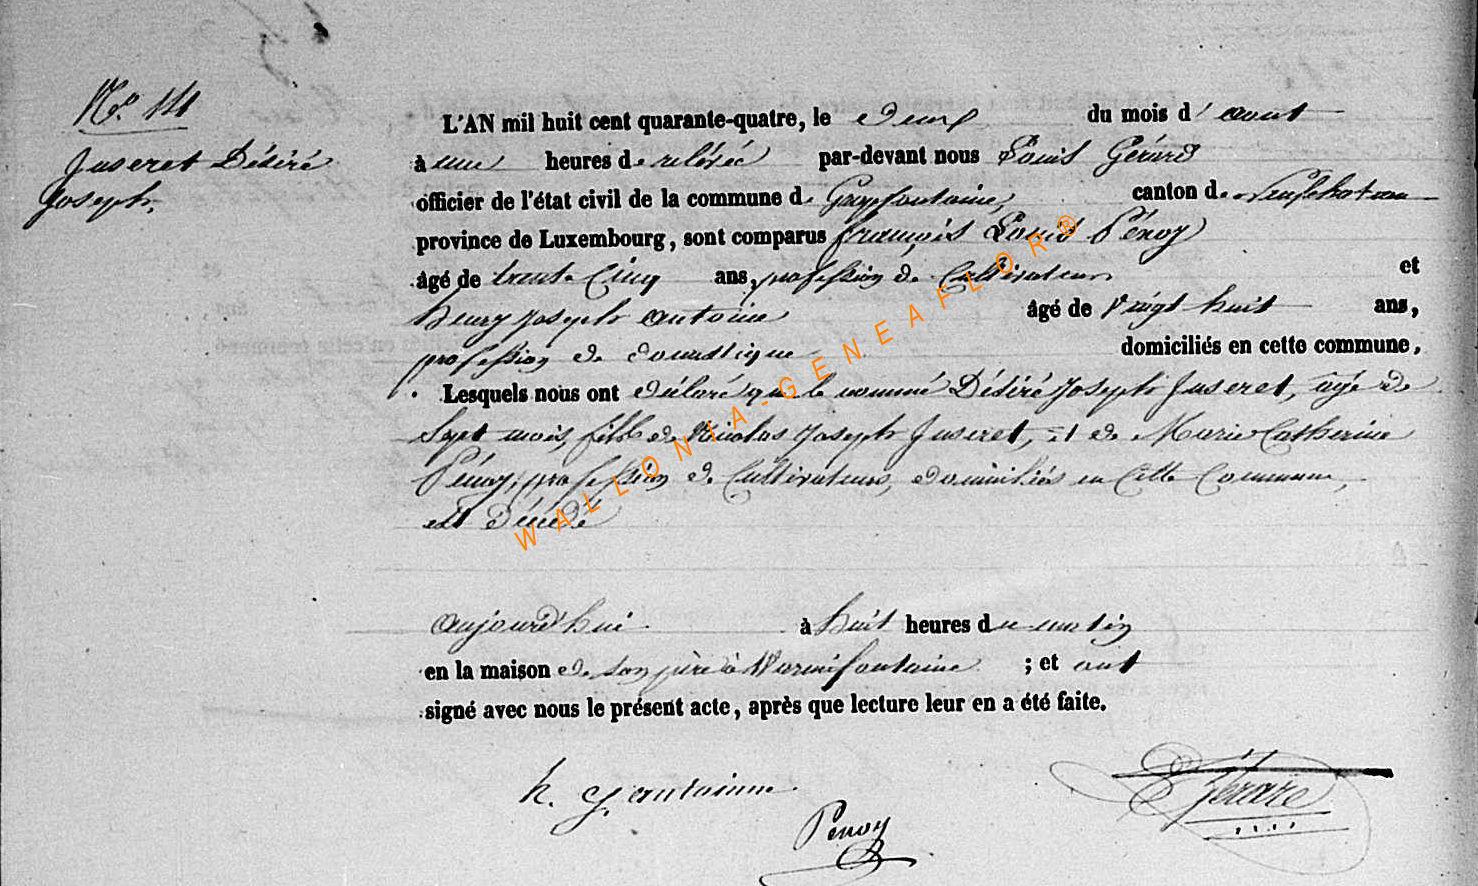 N.º 14
Juseret Désiré
Joseph.
L'AN mil huit cent quarante-quatre, le deux du mois d' aout
à une heures de relévée par-devant nous Louis Gérard
officier de l'état civil de la commune de Grapfontaine, canton de Neufchateau
province de Luxembourg, sont comparus françois Louis Pénoy
âgé de trente Cinq ans, profession de Cultivateur et
henry joseph antoine âgé de Vingt huit ans,
profession de domestique domiciliés en cette commune,
Lesquels nous ont déclaré que le nommé Désiré Joseph Juseret, agé de
Sept mois, fils de Nicolas Joseph Juseret, et de Marie Catherine
Pénoy, profession de Cultivateurs, domiciliés en Cette Commune,
est décédé
aujourd'hui à huit heures du matin
en la maison de son père à Warmifontaine ; et ont
signé avec nous le présent acte, après que lecture leur en a été faite.
h. j. antoinne
Penoy
Gérard
WALLONIA-GENEAFLOR®